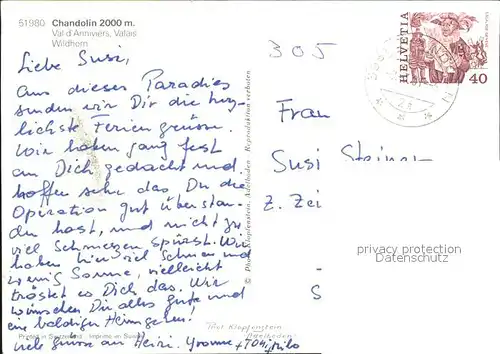 51980 Chandolin 2000 m.
Val d'Anniviers, Valais
Wildhorn
Liebe Susi,
aus dieser Paradies
senden wir Dir die herz-
lichste Feriengrüsse.
Wir haben ganz fest
an Dich gedacht und
hoffen sehr das Du die
Operation gut überstan-
den hast, und nicht zu
viel Schmerzen spürst. Wir
haben hier viel Schnee und
wenig Sonne, vielleicht
tröstet es Dich das. Wir
wünschen Dir alles gute und
eine baldigen Heimgehen!
viele grüsse an Heizi. Yvonne + Toni
Printed in Switzerland Imprimé en Suisse
Photo Klopfenstein, Adelboden Reproduktion verboten
305
Frau
Susi Steiner
z. Zei
S
HELVETIA
40
privacy protection
Datenschutz
Phot Klopfenstein
Adelboden